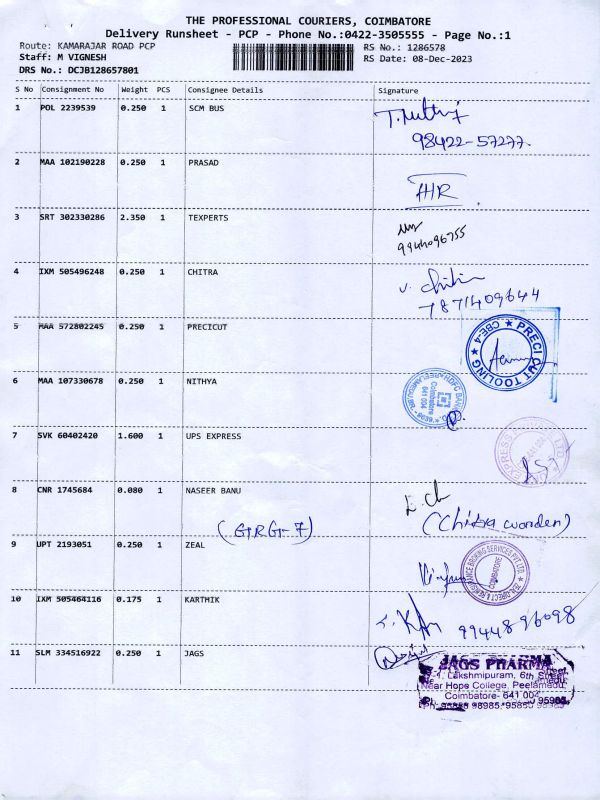 THE PROFESSIONAL COURIERS, COIMBATORE
Delivery Runsheet - PCP - Phone No.:0422-3505555 - Page No.:1
Route: KAMARAJAR ROAD PCP
RS No.: 1286578
Staff: M VIGNESH
RS Date: 08-Dec-2023
DRS No.: DCJB128657801
S No Consignment No Weight PCS Consignee Details Signature
1 POL 2239539 0.250 1 SCM BUS
98422-57277.
2 MAA 102190228 0.250 1 PRASAD
3 SRT 302330286 2.350 1 TEXPERTS
9944096755
4 IXM 505496248 0.250 1 CHITRA
V. Chitra
7871409644
5 MAA 572802245 0.250 1 PRECICUT
PRECI CUT TOOLING
CBE-4
6 MAA 107330678 0.250 1 NITHYA
HDFC BANK
Coimbatore
641 004
7 SVK 60402420 1.600 1 UPS EXPRESS
EXPRESS
8 CNR 1745684 0.080 1 NASEER BANU
(Chitra worden)
(GRG-7)
9 UPT 2193051 0.250 1 ZEAL
COIMBATORE
10 IXM 505464116 0.175 1 KARTHIK
99448 96098
11 SLM 334516922 0.250 1 JAGS
JAGS PHARMA
Lakshmipuram, 6th Street,
Near Hope College, Peelamedu,
Coimbatore- 641 004